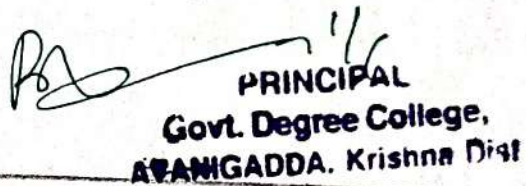 PRINCIPAL
Govt. Degree College,
AVANIGADDA. Krishna Dist